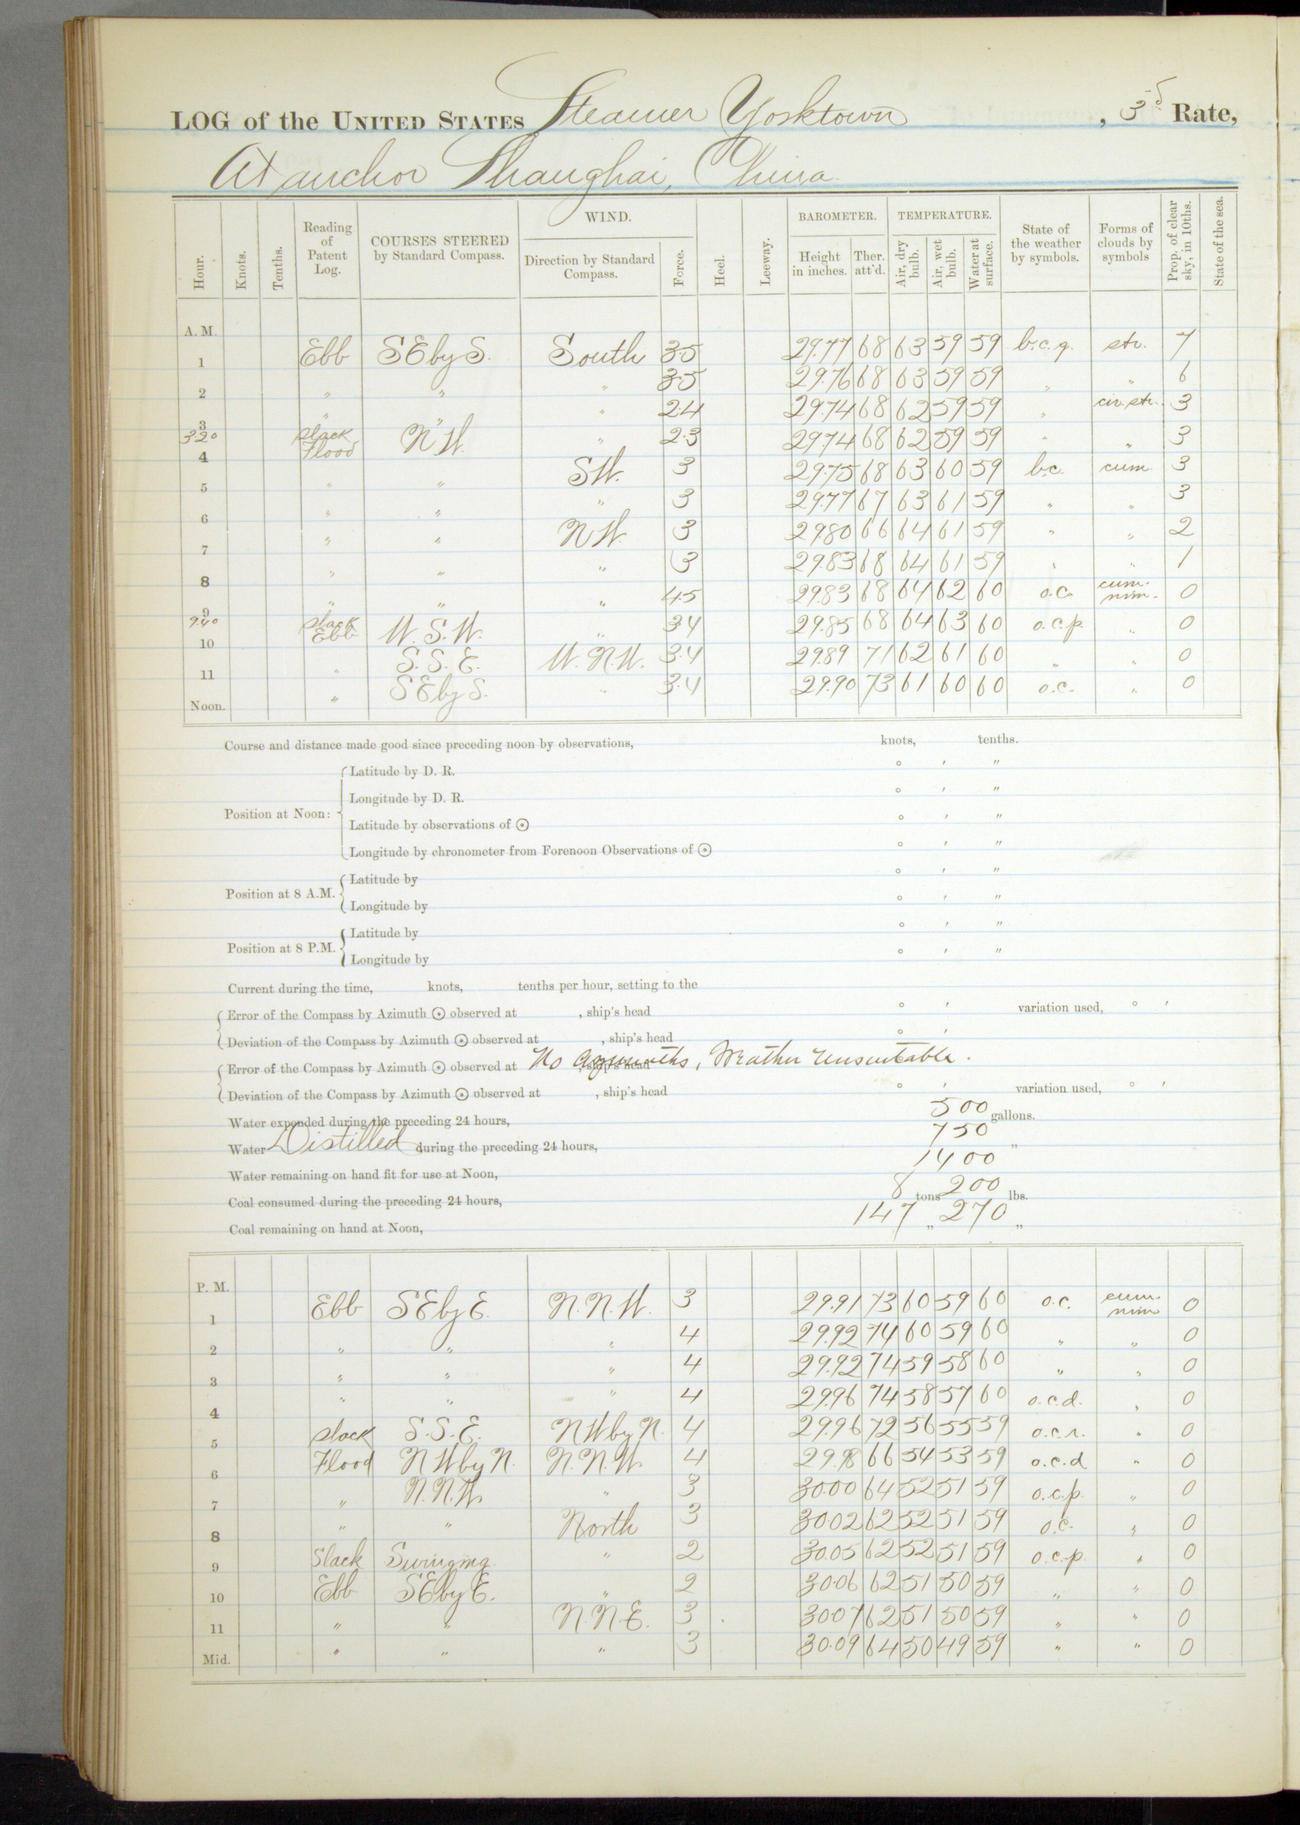 LOG of the UNITED STATES Steamer Yorktown, 3d Rate,
At anchor Shanghai, China.
Hour. Knots. Tenths. Reading of Patent Log. COURSES STEERED by Standard Compass. WIND. Direction by Standard Compass. Force. Heel. Leeway. BAROMETER. Height in inches. Ther. att'd. TEMPERATURE. Air, dry bulb. Air, wet bulb. Water at surface. State of the weather by symbols. Forms of clouds by symbols Prop. of clear sky, in 10ths. State of the sea.
A. M.
1 Ebb SE by S. South 3.5 29.77 68 63 59 59 b.c.q. str. 7
2 " " " 3.5 29.76 68 63 59 59 " " 6
3 " " " 2.4 29.74 68 62 59 59 " cir. str. 3
3 20 Slack
4 Flood NW. " 2.3 29.74 68 62 59 59 " " 3
5 " " SW. 3 29.75 68 63 60 59 b.c. cum 3
6 " " " 3 29.77 67 63 61 59 " " 3
7 " " NW. 3 29.80 66 64 61 59 " " 2
8 " " " 3 29.83 68 64 61 59 " " 1
9 " " " 4.5 29.83 68 64 62 60 o.c. cum. nim. 0
9.40 Slack
10 Ebb W. S. W. " 3.4 29.85 68 64 63 60 o.c.p. " 0
11 " S. S. E. W. N. W. 3.4 29.89 71 62 61 60 " " 0
Noon. " SE by S. " 3.4 29.90 73 61 60 60 o.c. " 0
Course and distance made good since preceding noon by observations, knots, tenths.
Position at Noon: Latitude by D. R. ° ′ ″
Longitude by D. R. ° ′ ″
Latitude by observations of ☉ ° ′ ″
Longitude by chronometer from Forenoon Observations of ☉ ° ′ ″
Position at 8 A.M. Latitude by ° ′ ″
Longitude by ° ′ ″
Position at 8 P.M. Latitude by ° ′ ″
Longitude by ° ′ ″
Current during the time, knots, tenths per hour, setting to the
Error of the Compass by Azimuth ☉ observed at , ship's head ° ′ variation used, ° ′
Deviation of the Compass by Azimuth ☉ observed at , ship's head ° ′
Error of the Compass by Azimuth ☉ observed at , ship's head No azimuths, Weather unsuitable.
Deviation of the Compass by Azimuth ☉ observed at , ship's head ° ′ variation used, ° ′
Water expended during the preceding 24 hours, 500 gallons.
Water Distilled during the preceding 24 hours, 750 "
Water remaining on hand fit for use at Noon, 1400
Coal consumed during the preceding 24 hours, 8 tons 200 lbs.
Coal remaining on hand at Noon, 147 " 270 "
P. M.
1 Ebb SE by E. N. N. W. 3 29.91 73 60 59 60 o.c. cum. nim 0
2 " " " 4 29.92 74 60 59 60 " " 0
3 " " " 4 29.92 74 59 58 60 " " 0
4 " " " 4 29.96 74 58 57 60 o.c.d. " 0
5 Slack S. S. E. NW by N. 4 29.96 72 56 55 59 o.c.r. " 0
6 Flood NW by N. N. N. W. 4 29.98 66 54 53 59 o.c.d " 0
7 " N. N. W. " 3 30.00 64 52 51 59 o.c.p. " 0
8 " " North 3 30.02 62 52 51 59 o.c. " 0
9 Slack Swinging " 2 30.05 62 52 51 59 o.c.p. " 0
10 Ebb SE by E. " 2 30.06 62 51 50 59 " " 0
11 " " N. N. E. 3 30.07 62 51 50 59 " " 0
Mid. " " " 3 30.09 64 50 49 59 " " 0